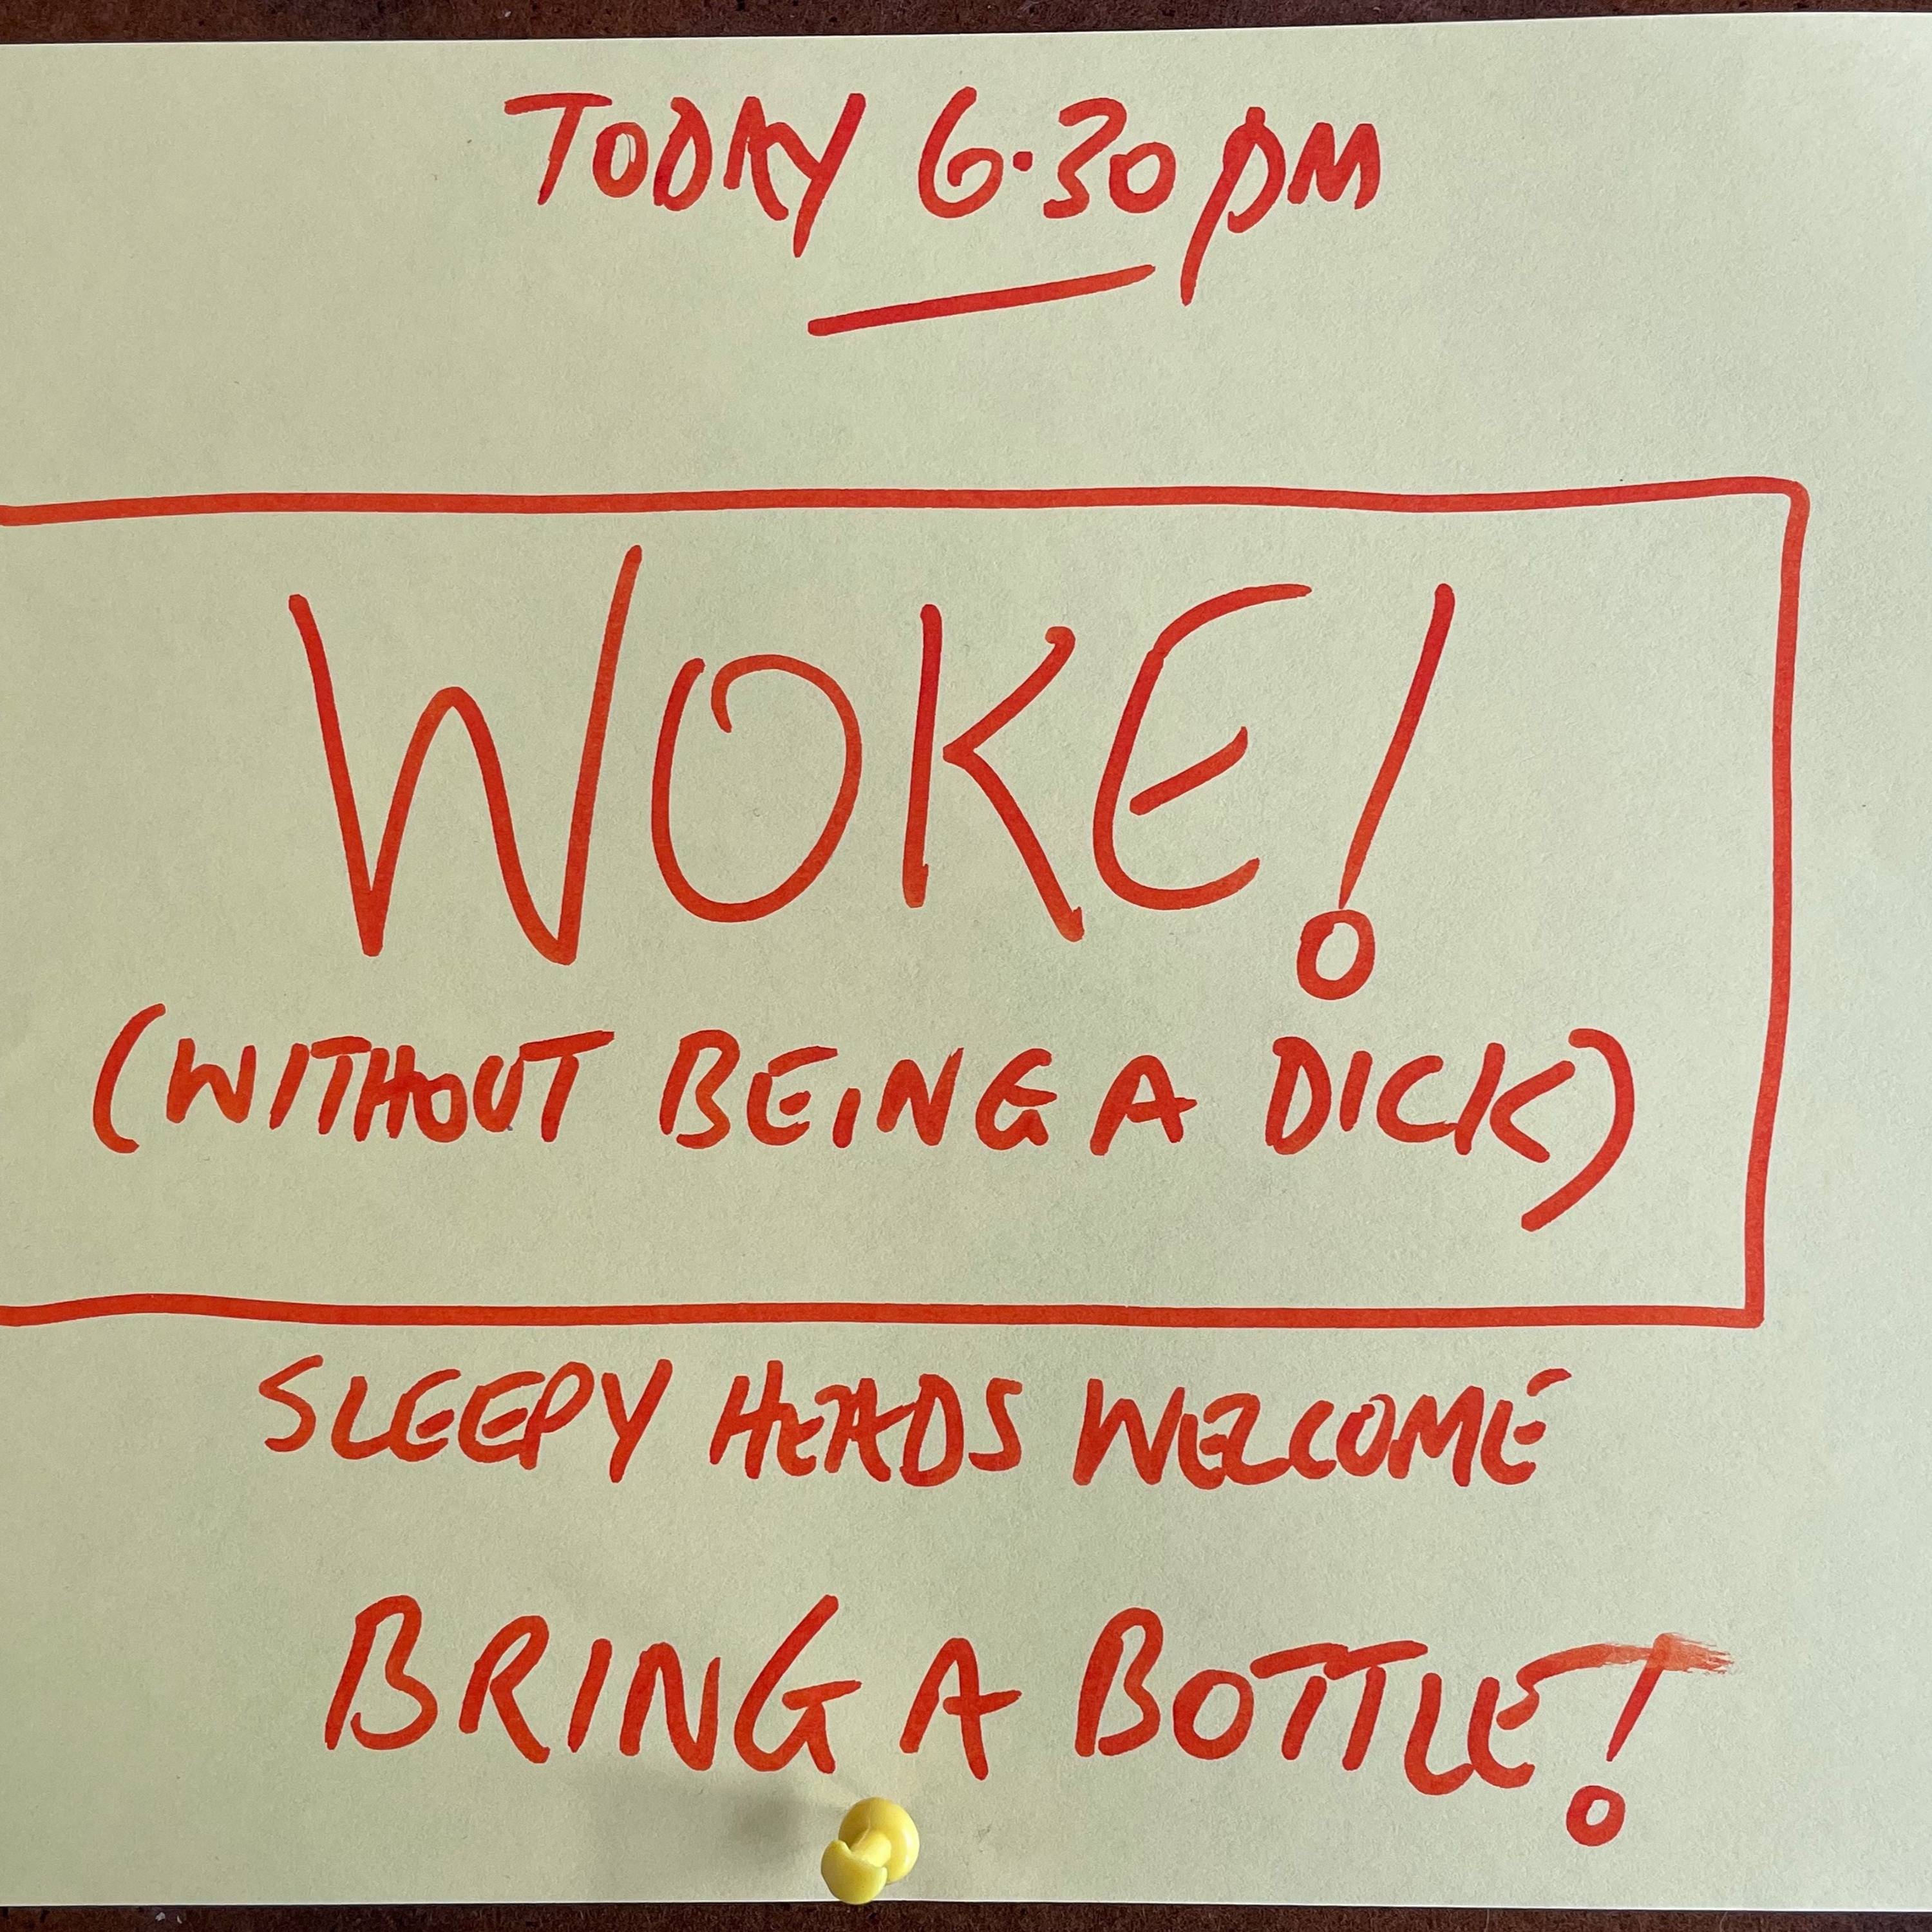 TODAY 6.30pm
WOKE!
(WITHOUT BEING A DICK)
SLEEPY HEADS WELCOME
BRING A BOTTLE!